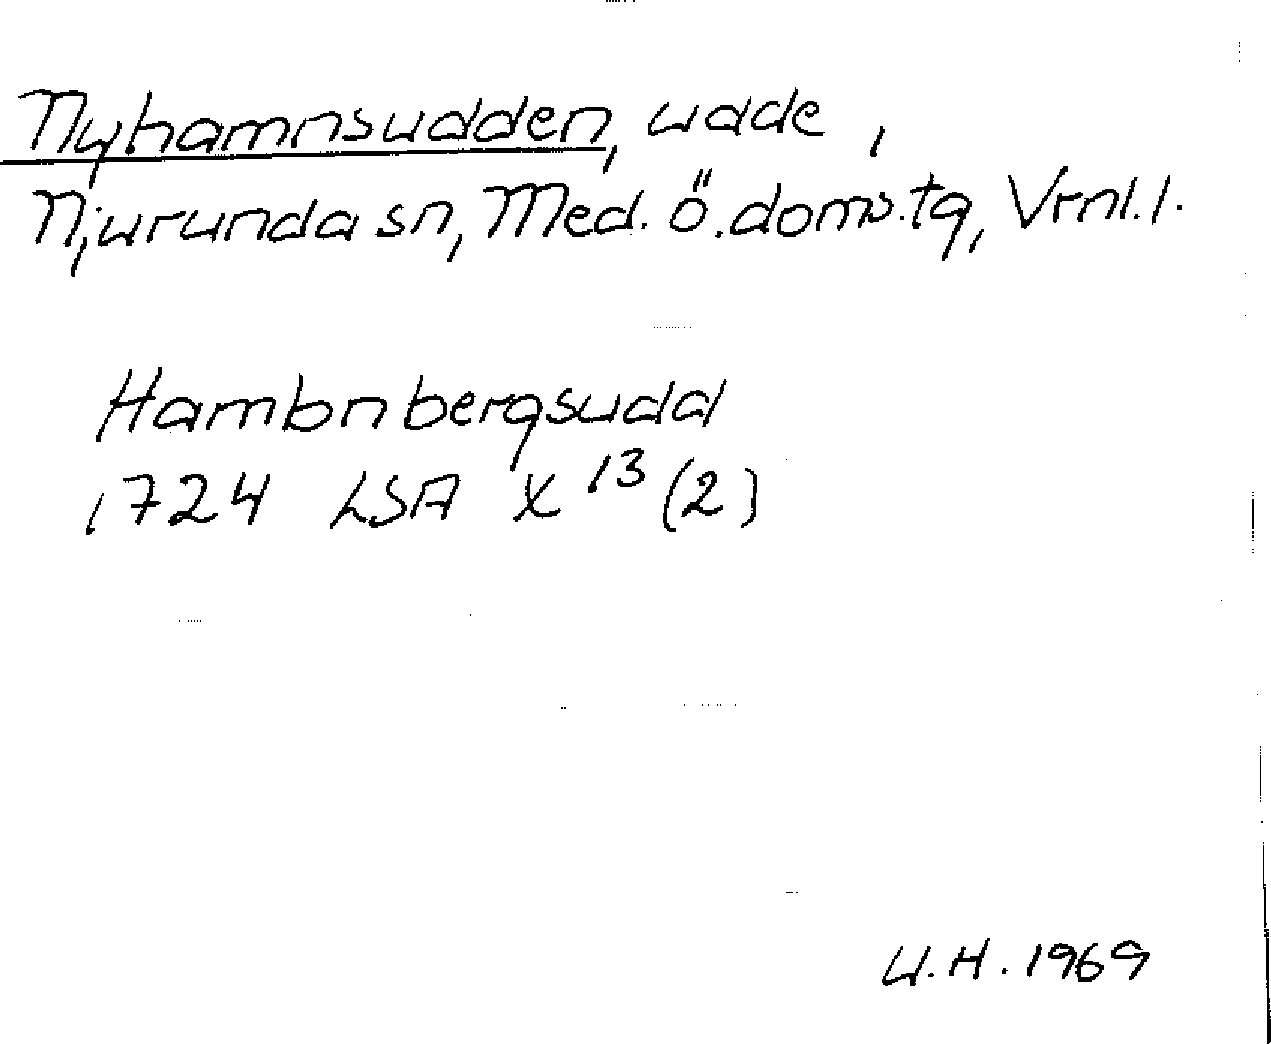 Nyhamnsudden, udde,
Njurunda sn, Med. ö. doms. tg, Vrnl. l.
Hambnbergsudd
1724 LSA X 13 (2)
U.H. 1969